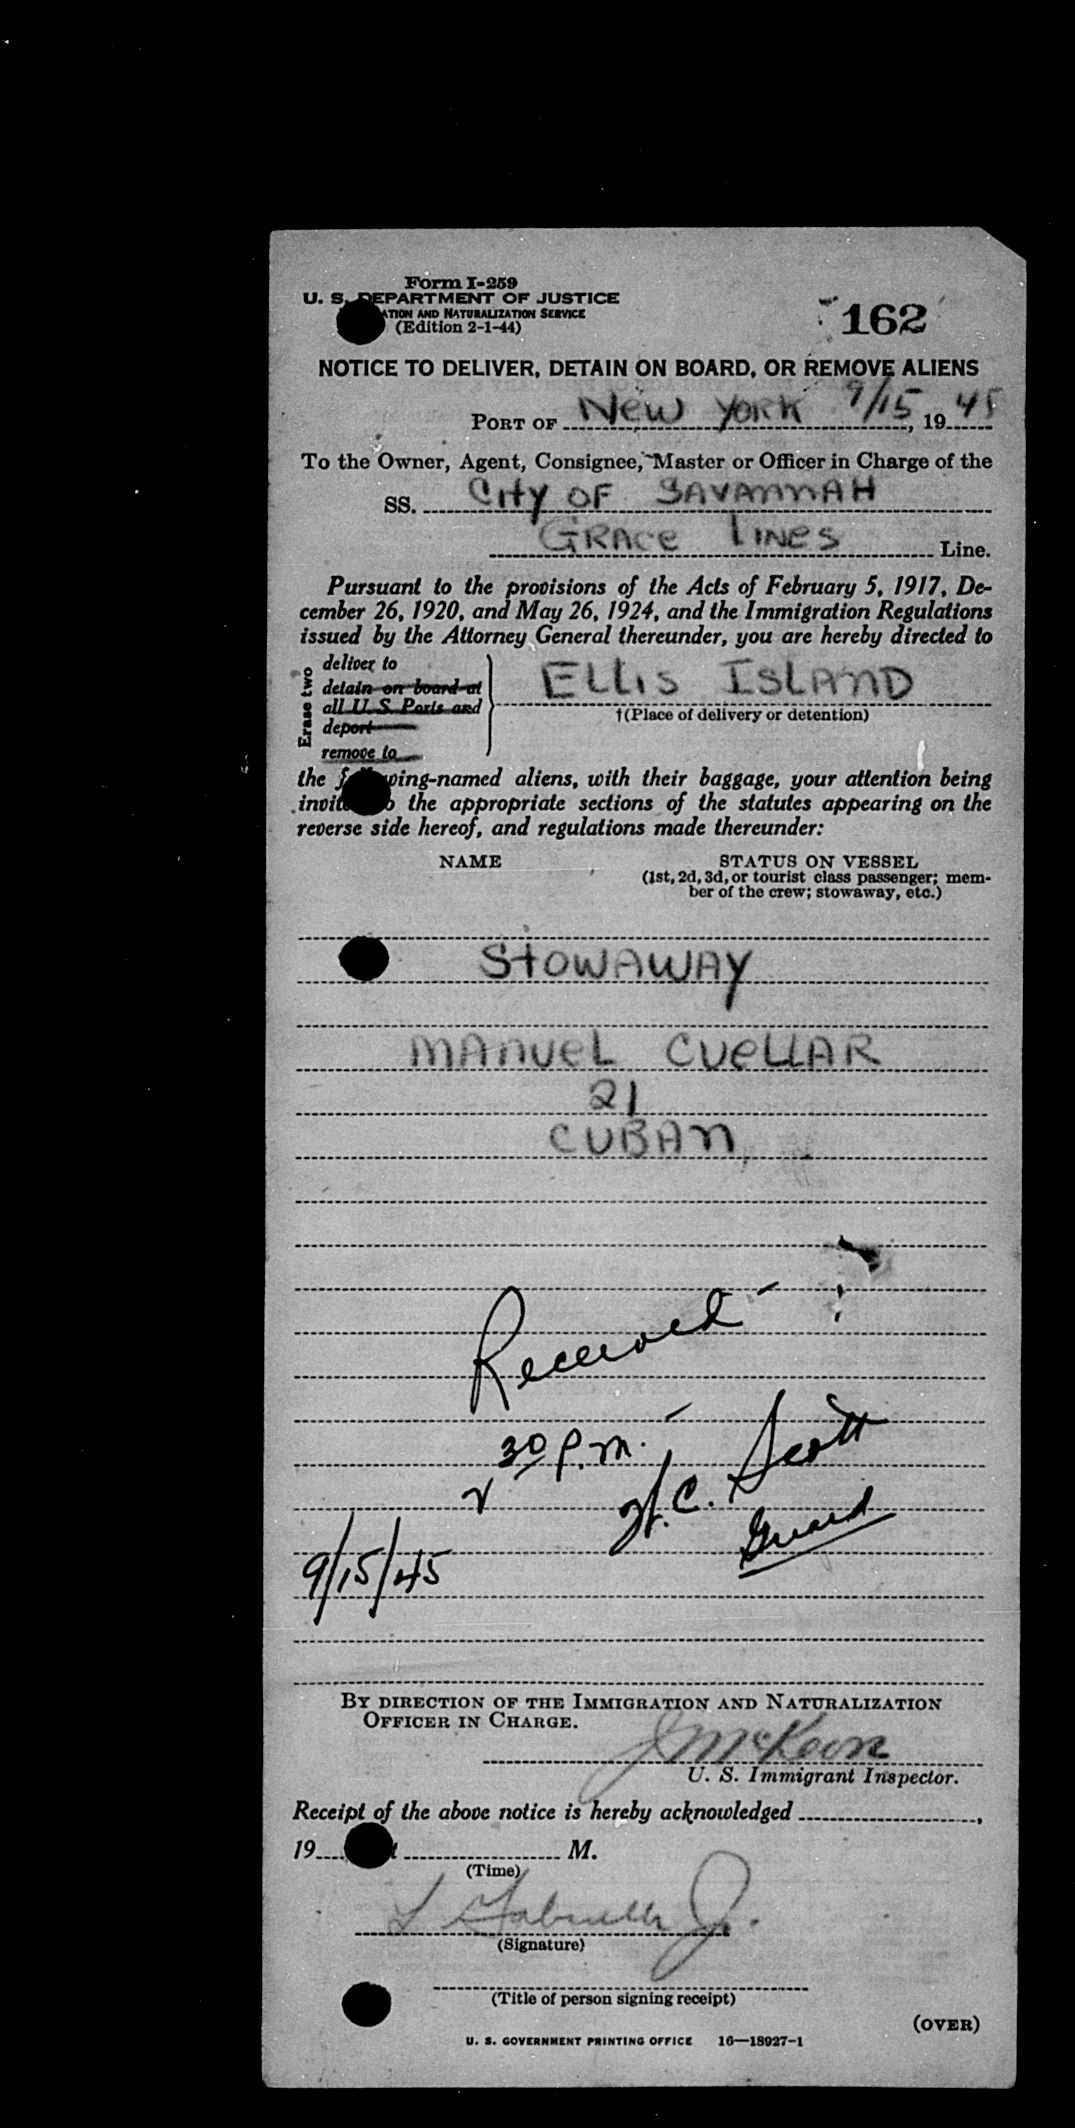 Form I-259
U. S. DEPARTMENT OF JUSTICE
ATION AND NATURALIZATION SERVICE
(Edition 2-1-44)
162
NOTICE TO DELIVER, DETAIN ON BOARD, OR REMOVE ALIENS
PORT OF New York 9/15, 1945
To the Owner, Agent, Consignee, Master or Officer in Charge of the
SS. City of Savannah
Grace Lines Line.
Pursuant to the provisions of the Acts of February 5, 1917, De-
cember 26, 1920, and May 26, 1924, and the Immigration Regulations
issued by the Attorney General thereunder, you are hereby directed to
Erase two
deliver to
detain on board at
all U. S. Ports and
deport
remove to
Ellis Island
†(Place of delivery or detention)
the following-named aliens, with their baggage, your attention being
invited to the appropriate sections of the statutes appearing on the
reverse side hereof, and regulations made thereunder:
NAME
STATUS ON VESSEL
(1st, 2d, 3d, or tourist class passenger; mem-
ber of the crew; stowaway, etc.)
Stowaway
Manuel Cuellar
21
Cuban
Received
2 30 P.M.
H.C. Scott
Guard
9/15/45
BY DIRECTION OF THE IMMIGRATION AND NATURALIZATION
OFFICER IN CHARGE.
J McKeon
U. S. Immigrant Inspector.
Receipt of the above notice is hereby acknowledged ,
19 M.
(Time)
(Signature)
(Title of person signing receipt)
(OVER)
U. S. GOVERNMENT PRINTING OFFICE 16—18927-1